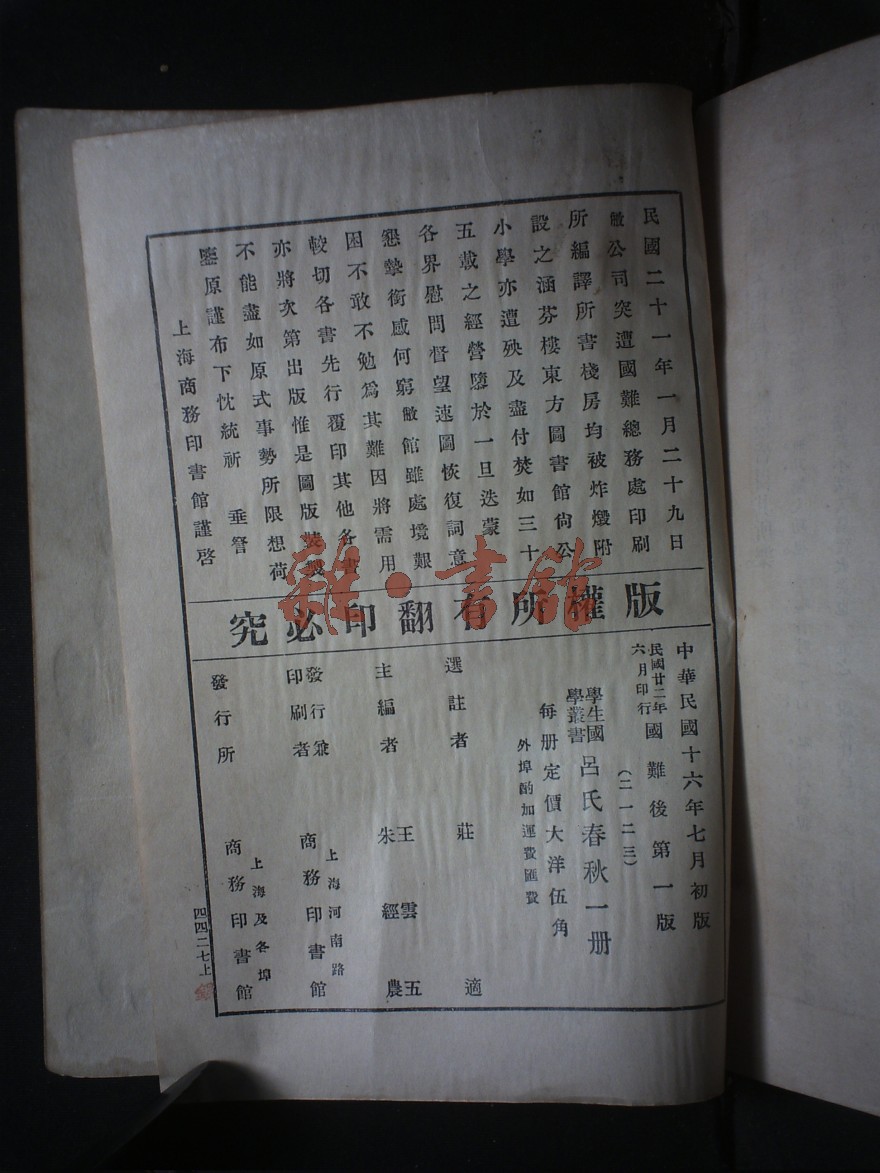 民國二十一年一月二十九日
敝公司突遭國難總務處印刷
所編譯所書棧房均被炸燬附
設之涵芬樓東方圖書館尙公
小學亦遭殃及盡付焚如三十
五載之經營隳於一旦迭蒙
各界慰問督望速圖恢復詞意
懇摯銜感何窮敝館雖處境艱
困不敢不勉爲其難因將需用
較切各書先行覆印其他各書
亦將次第出版惟是圖版裝製
不能盡如原式事勢所限想荷
鑒原謹布下忱統祈 垂詧
上海商務印書館謹啓
版權所有翻印必究
中華民國十六年七月初版
民國廿二年六月印行國難後第一版
(二一二三)
學生國學叢書 呂氏春秋一册
每册定價大洋伍角
外埠酌加運費匯費
選註者 莊適
主編者 王雲五 朱經農
發行兼印刷者 上海河南路 商務印書館
發行所 上海及各埠 商務印書館
四四二七上
雜·書館